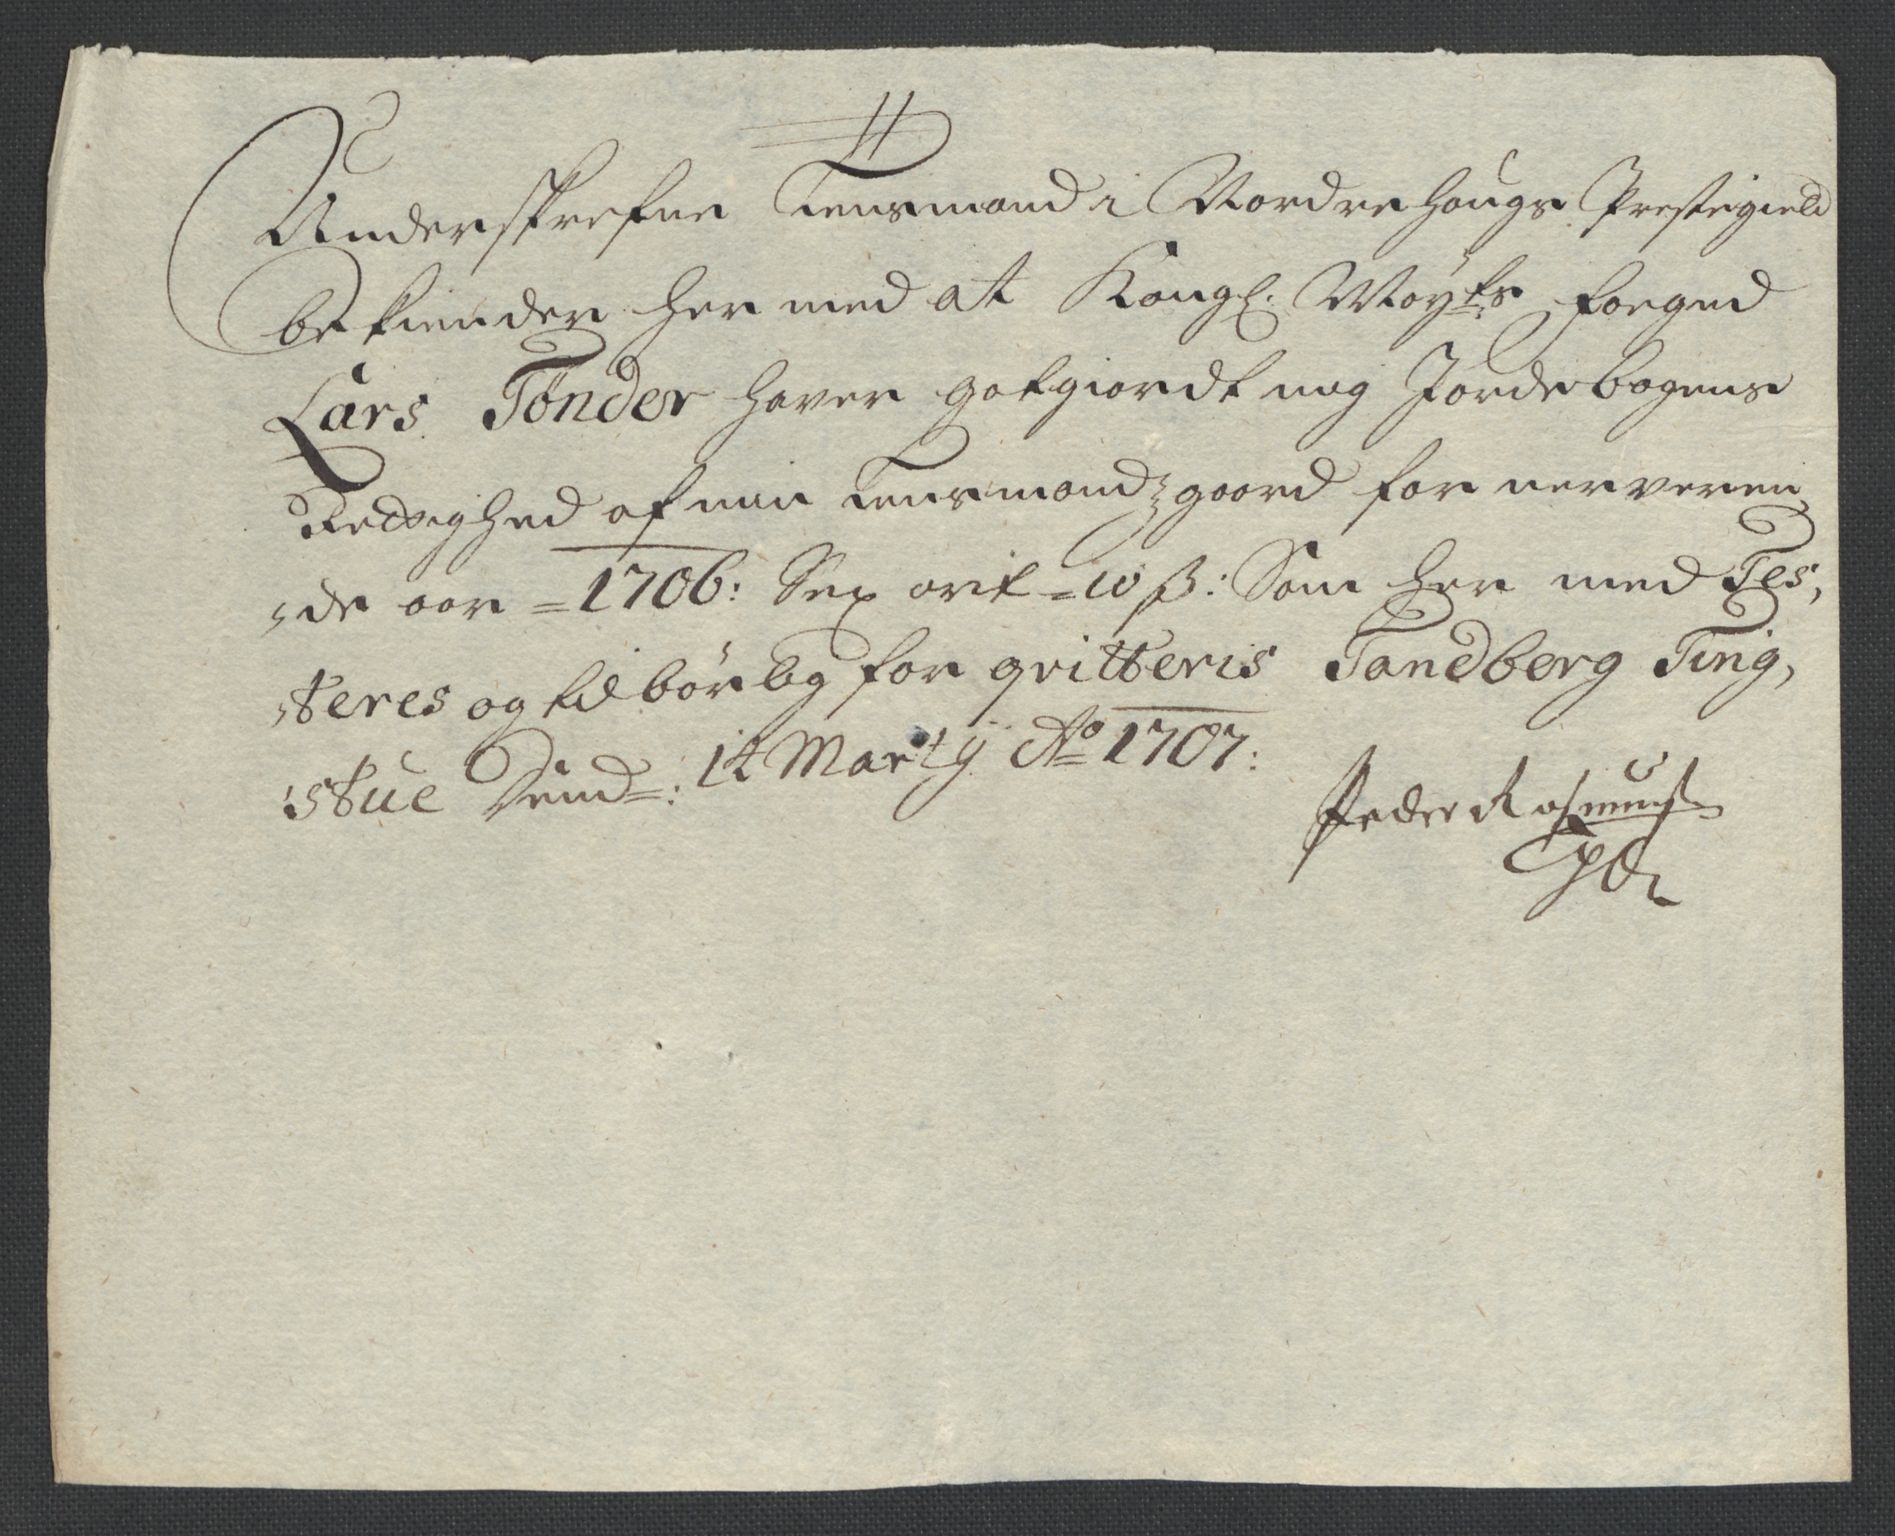 Underskrefne Lensmand i Nordrehougs Prestegield
bekiender her med at Kongl. Mayts foeged
Lars Tønder haver gotgiordt mig Jordebogens
Rettighed af min Lensmandz gaard for nerveren
de aar = 1706: Sex ort = 10 ß: Som her med Tes,
teres og tilbørlig for qvitteris Tandberg Ting,
stue Dend: 14 Martij Ao 1707:
Peder Rasmuss